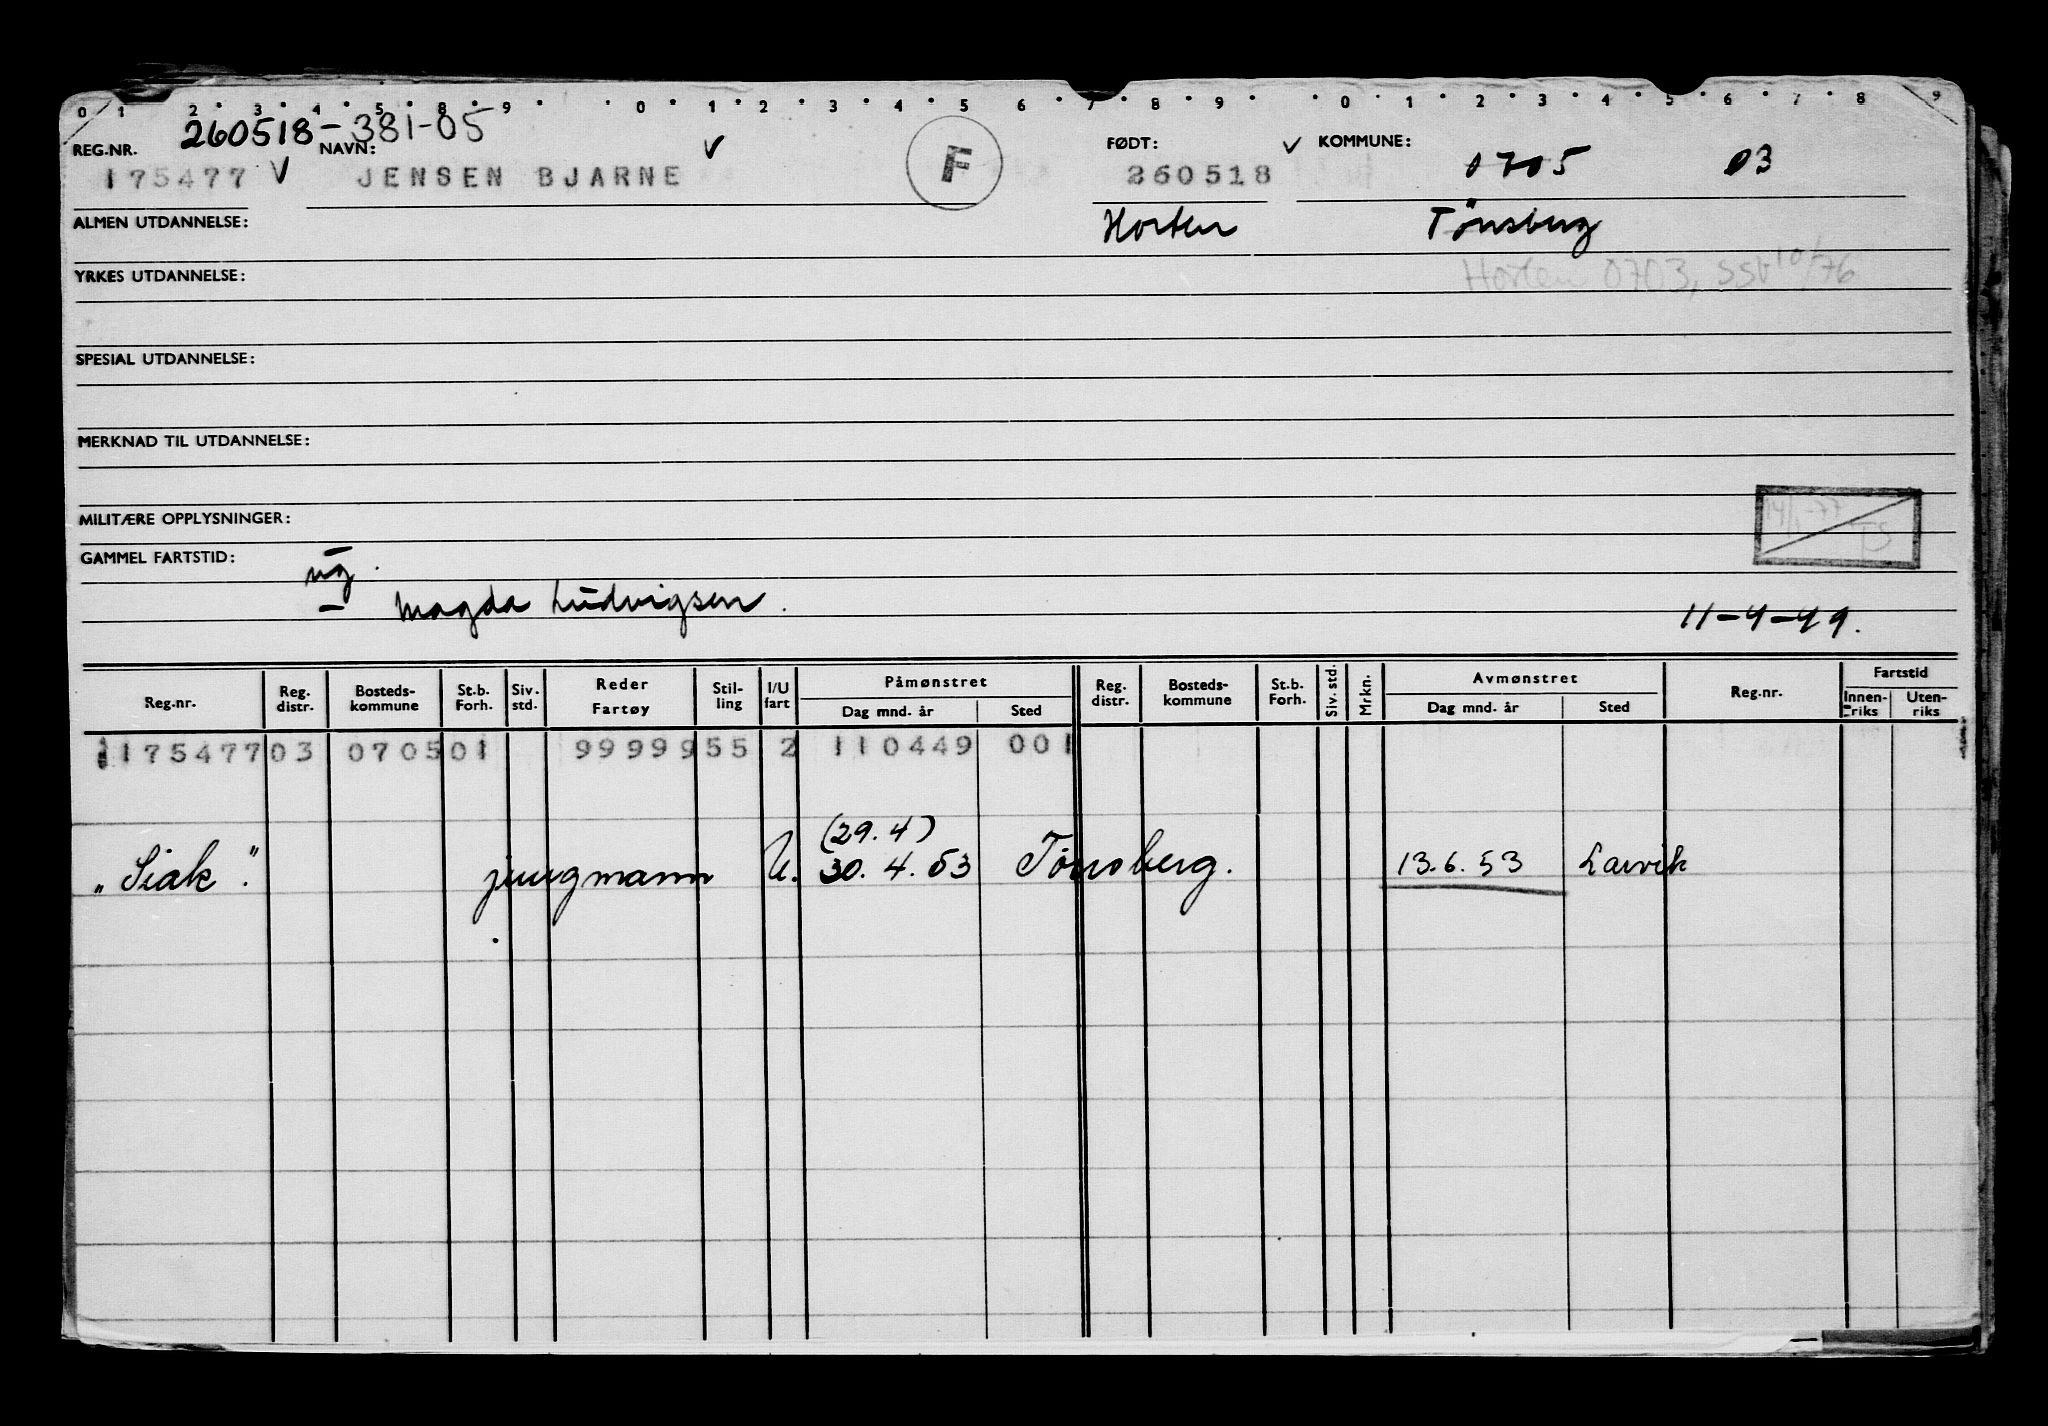 0 1 2 3 4 5 6 7 8 9 0 1 2 3 4 5 6 7 8 9 0 1 2 3 4 5 6 7 8 9
260518-381-05
REG.NR. NAVN: FØDT: KOMMUNE: 0705 03
175477 JENSEN BJARNE F 260518
ALMEN UTDANNELSE: Horten Tønsberg
YRKES UTDANNELSE: Horten 0703, SSt 10/76
SPESIAL UTDANNELSE:
MERKNAD TIL UTDANNELSE:
MILITÆRE OPPLYSNINGER: 14/1-77 TS
GAMMEL FARTSTID:
ug
— Magda Ludvigsen. 11-4-49.
Reg.nr. Reg. distr. Bosteds-kommune St.b. Forh. Siv. std. Reder Fartøy Stil-ling I/U fart Påmønstret Dag mnd. år Sted Reg. distr. Bosteds-kommune St.b. Forh. Siv. std. Mrkn. Avmønstret Dag mnd. år Sted Reg.nr. Fartstid Innen-riks Uten-riks
175477 03 0705 01 99999 55 2 110449 001
(29.4)
"Siak". jungmann U. 30.4.53 Tønsberg. 13.6.53 Larvik